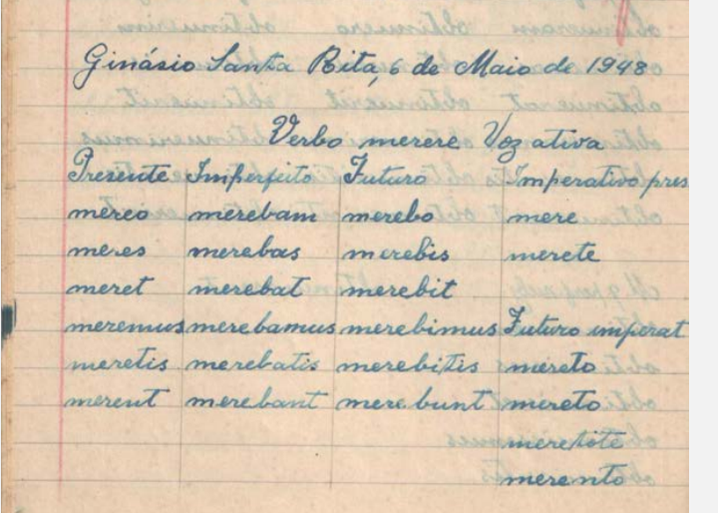 Ginásio Santa Rita, 6 de Maio de 1948
Verbo merere Voz ativa
Presente Imperfeito Futuro Imperativo pres
mereo merebam merebo mere
meres merebas merebis merete
meret merebat merebit
meremus merebamus merebimus Futuro imperat
meretis merebatis merebitis mereto
merent merebant merebunt mereto
meretote
merento